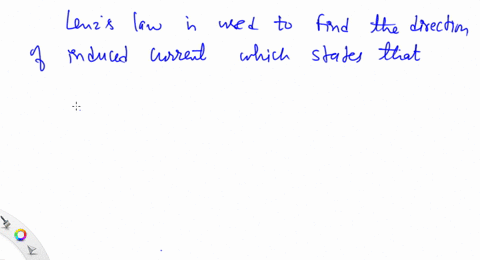 Lenz's law is used to find the direction
of induced current which states that